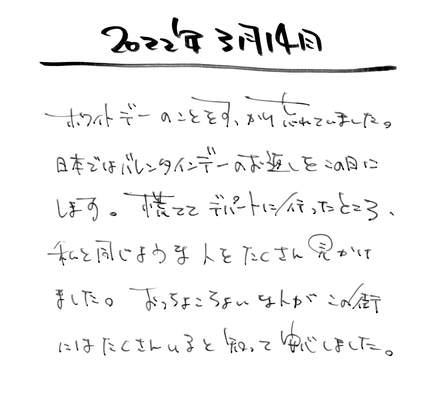 2022年3月14日
ホワイトデーのことをすっかり忘れていました。
日本ではバレンタインデーのお返しをこの日に
します。慌ててデパートに行ったところ、
私と同じような人をたくさん見かけ
ました。おっちょこちょいな人がこの街
にはたくさんいると知って安心しました。